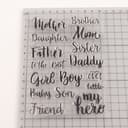 Mother Brother
Daughter Mum
Father Sister
to the best Daddy
Girl Boy ever
little
Baby Son my
Friend hero